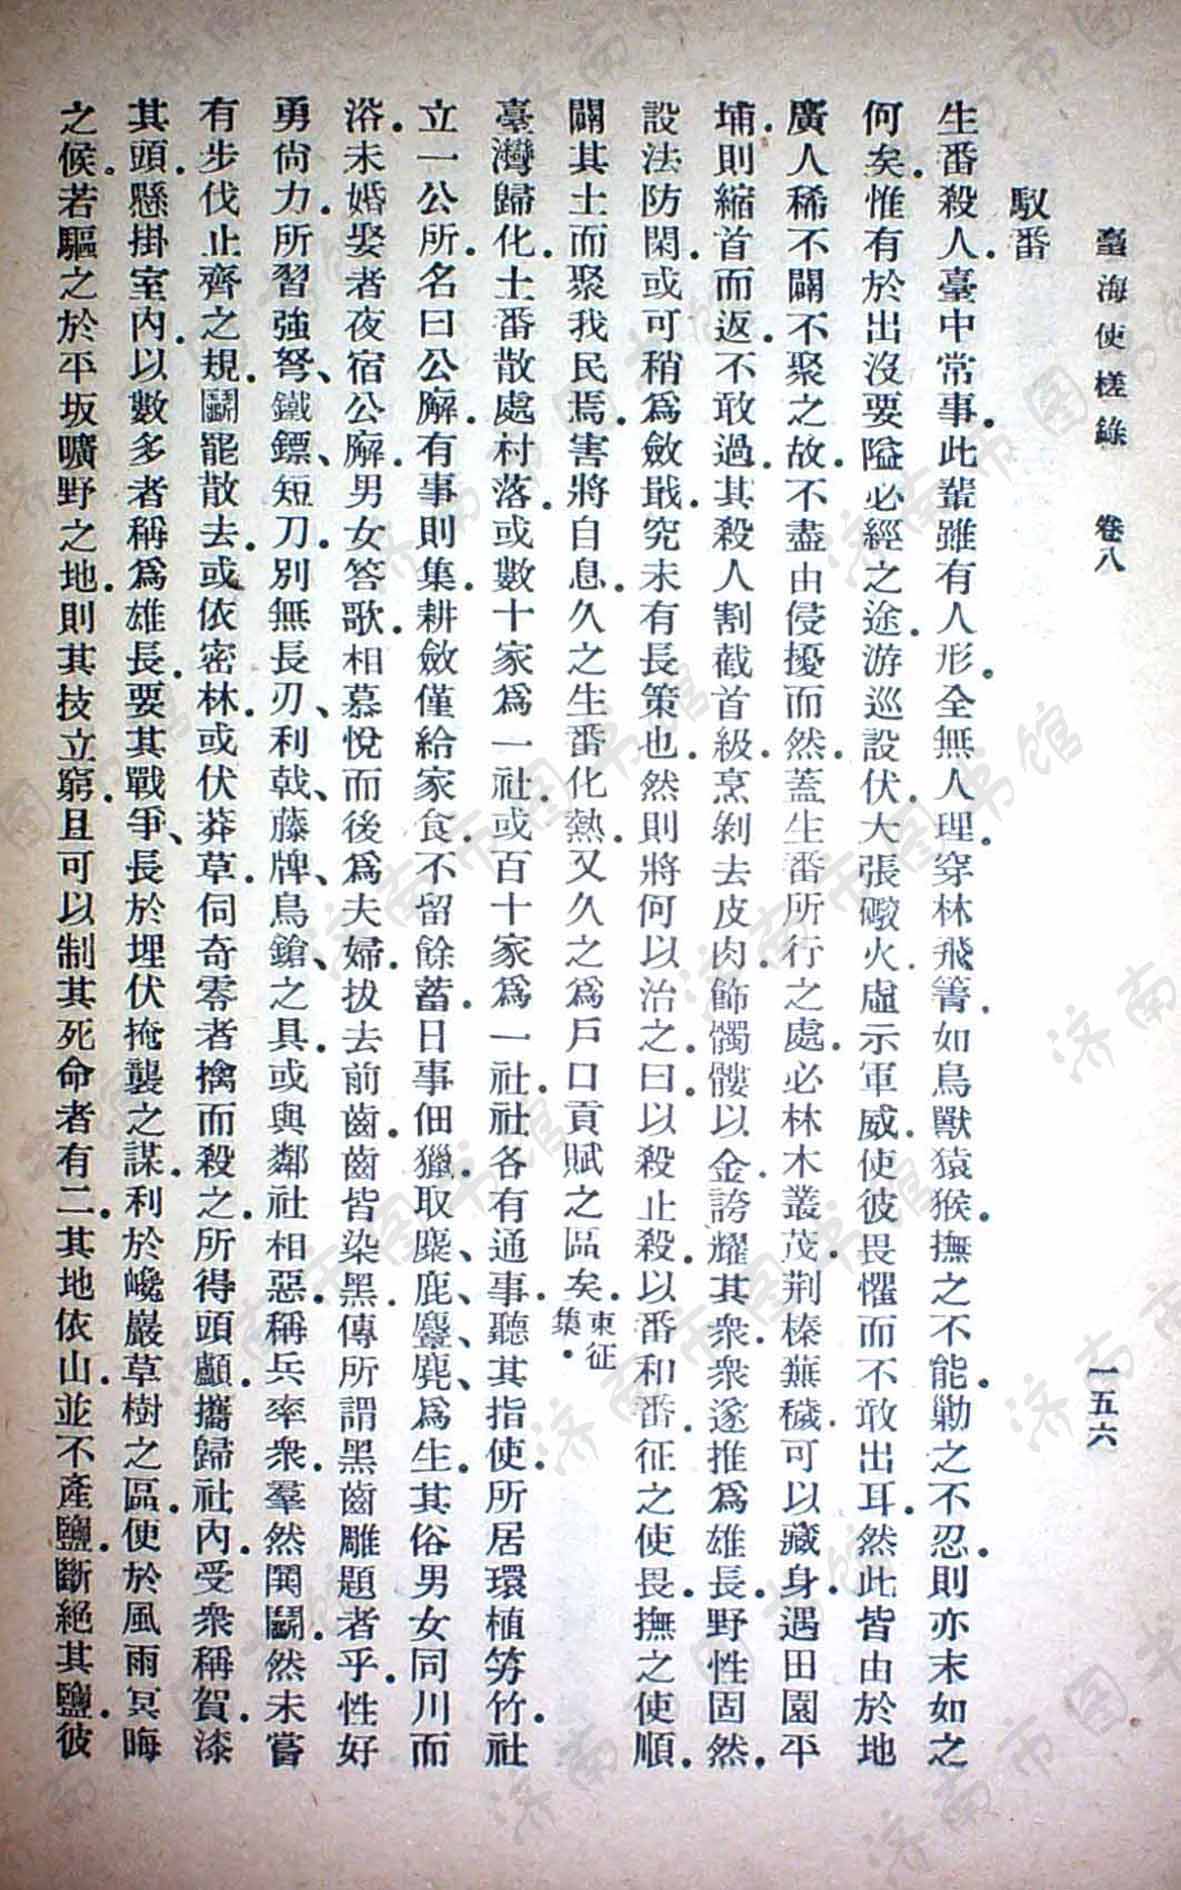 臺海使槎錄 卷八 一五六
馭番
生番殺人.臺中常事.此輩雖有人形.全無人理.穿林飛箐.如鳥獸猿猴.撫之不能.勦之不忍.則亦末如之
何矣.惟有於出沒要隘必經之途.游巡設伏.大張礮火.虛示軍威.使彼畏懼而不敢出耳.然此皆由於地
廣人稀.不闢不聚之故.不盡由侵擾而然.蓋生番所行之處.必林木叢茂.荆榛蕪穢.可以藏身.遇田園平
埔.則縮首而返.不敢過.其殺人割截首級.烹剝去皮肉.飾髑髏以金.誇耀其衆.衆遂推爲雄長.野性固然.
設法防閑.或可稍爲斂戢.究未有長策也.然則將何以治之.曰.以殺止殺.以番和番.征之使畏.撫之使順.
闢其土而聚我民焉.害將自息.久之生番化熟.又久之爲戶口貢賦之區矣.東征集.
臺灣歸化土番.散處村落.或數十家爲一社.或百十家爲一社.社各有通事.聽其指使.所居環植竻竹.社
立一公所.名曰公廨.有事則集.耕斂僅給家食.不留餘蓄.日事佃獵.取麋、鹿、麞、麂爲生.其俗男女同川而
浴.未婚娶者夜宿公廨.男女答歌.相慕悅而後爲夫婦.拔去前齒.齒皆染黑.傳所謂黑齒雕題者乎.性好
勇尚力.所習強弩、鐵鏢、短刀.別無長刃、利戟、藤牌、鳥鎗、之具.或與鄰社相惡.稱兵率衆.羣然鬨鬭.然未嘗
有步伐止齊之規.鬭罷散去.或依密林.或伏莽草.伺奇零者擒而殺之.所得頭顱.攜歸社內.受衆稱賀.漆
其頭.懸掛室內.以數多者稱爲雄長.要其戰爭、長於埋伏掩襲之謀.利於巉巖草樹之區.便於風雨冥晦
之候.若驅之於平坂曠野之地.則其技立窮.且可以制其死命者有二.其地依山.並不產鹽.斷絕其鹽.彼